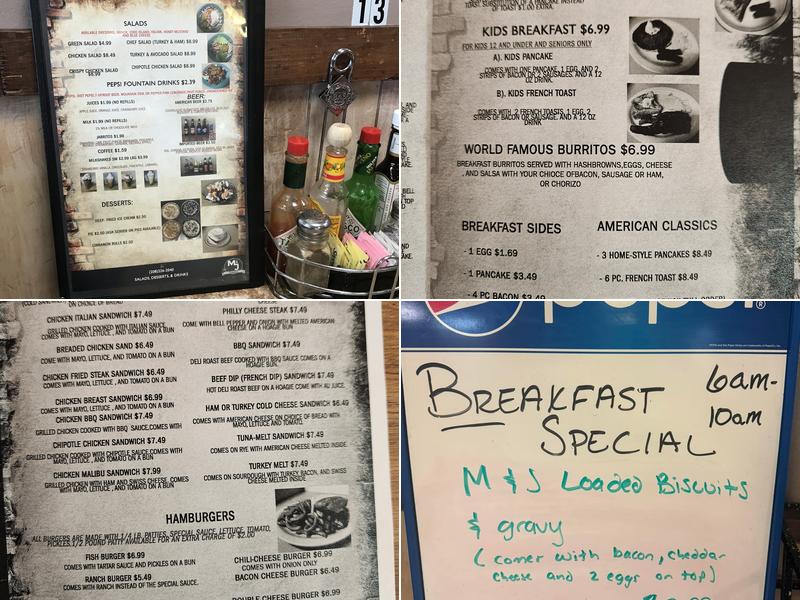 13
SALADS
GREEN SALAD $4.99
CHEF SALAD (TURKEY & HAM) $8.99
CHICKEN SALAD $8.49
TURKEY & AVOCADO SALAD $8.99
CRISPY CHICKEN SALAD
CHIPOTLE CHICKEN SALAD $8.99
PEPSI FOUNTAIN DRINKS $2.39
BEER:
JUICES $1.99 (NO REFILLS)
AMERICAN BEER $2.75
MILK $1.99 (NO REFILLS)
JARRITOS $1.99
COFFEE $1.59
DESSERTS:
DEEP- FRIED ICE CREAM
CINNAMON ROLLS
SALADS, DESSERTS, & DRINKS
TOAST. SUBSTITUTION OF A PANCAKE INSTEAD
OF TOAST $1.00 EXTRA.
KIDS BREAKFAST $6.99
FOR KIDS 12 AND UNDER AND SENIORS ONLY
A). KIDS PANCAKE
COMES WITH ONE PANCAKE, 1 EGG, AND 2
STRIPS OF BACON OR 2 SAUSAGES, AND A 12
OZ DRINK.
B). KIDS FRENCH TOAST
COMES WITH, 2 FRENCH TOASTS, 1 EGG, 2
STRIPS OF BACON OR SAUSAGE, AND A 12 OZ
DRINK
WORLD FAMOUS BURRITOS $6.99
BREAKFAST BURRITOS SERVED WITH HASHBROWNS,EGGS, CHEESE
, AND SALSA WITH YOUR CHIOCE OFBACON, SAUSAGE OR HAM,
OR CHORIZO
BREAKFAST SIDES
- 1 EGG $1.69
- 1 PANCAKE $3.49
- 4 PC BACON $3.49
AMERICAN CLASSICS
- 3 HOME-STYLE PANCAKES $8.49
- 6 PC. FRENCH TOAST $8.49
CHICKEN ITALIAN SANDWICH $7.49
GRILLED CHICKEN COOKED WITH ITALIAN SAUCE
COMES WITH MAYO, LETTUCE , AND TOMATO ON A BUN
BREADED CHICKEN SAND $6.49
COME WITH MAYO, LETTUCE , AND TOMATO ON A BUN
CHICKEN FRIED STEAK SANDWICH $6.49
COMES WITH MAYO, LETTUCE , AND TOMATO ON A BUN
CHICKEN BREAST SANDWICH $6.99
COMES WITH MAYO, LETTUCE , AND TOMATO ON A BUN
CHICKEN BBQ SANDWICH $7.49
GRILLED CHICKEN COOKED WITH BBQ SAUCE,COMES WITH
MAYO, LETTUCE , AND TOMATO ON A BUN
CHIPOTLE CHICKEN SANDWICH $7.49
GRILLED CHICKEN COOKED WITH CHIPOTLE SAUCE COMES WITH
MAYO, LETTUCE , AND TOMATO ON A BUN
CHICKEN MALIBU SANDWICH $7.99
GRILLED CHICKEN WITH HAM AND SWISS CHEESE, COMES
WITH MAYO, LETTUCE , AND TOMATO ON A BUN
PHILLY CHEESE STEAK $7.49
COME WITH BELL PEPPER AND ONION WITH MELTED AMERICAN
CHEESE ON A HOAGIE BUN
BBQ SANDWICH $7.49
DELI ROAST BEEF COOKED WITH BBQ SAUCE COMES ON A
HOAGIE BUN.
BEEF DIP (FRENCH DIP) SANDWICH $7.49
HOT DELI ROAST BEEF ON A HOAGIE COME WITH AU JUICE.
HAM OR TURKEY COLD CHEESE SANDWICH $6.49
COMES WITH AMERICAN CHEESE ON CHOICE OF BREAD WITH
MAYO, LETTUCE AND TOMATO.
TUNA-MELT SANDWICH $7.49
COMES ON RYE WITH AMERICAN CHEESE MELTED INSIDE.
TURKEY MELT $7.49
COMES ON SOURDOUGH WITH TURKEY, BACON, AND SWISS
CHEESE MELTED INSIDE
HAMBURGERS
ALL BURGERS ARE MADE WITH 1/4 LB. PATTIES, SPECIAL SAUCE, LETTUCE, TOMATO,
PICKLES.1/2 POUND PATTY AVAILABLE FOR AN EXTRA CHARGE OF $2.00
FISH BURGER $6.99
COMES WITH TARTAR SAUCE AND PICKLES ON A BUN
RANCH BURGER $5.49
COMES WITH RANCH INSTEAD OF THE SPECIAL SAUCE.
CHILI-CHEESE BURGER $6.99
COMES WITH ONION ONLY
BACON CHEESE BURGER $6.49
DOUBLE CHEESE BURGER $6.99
pepsi®
BREAKFAST
SPECIAL
6am-
10am
M & J Loaded Biscuits
& gravy
( comes with bacon, cheddar
cheese and 2 eggs on top)